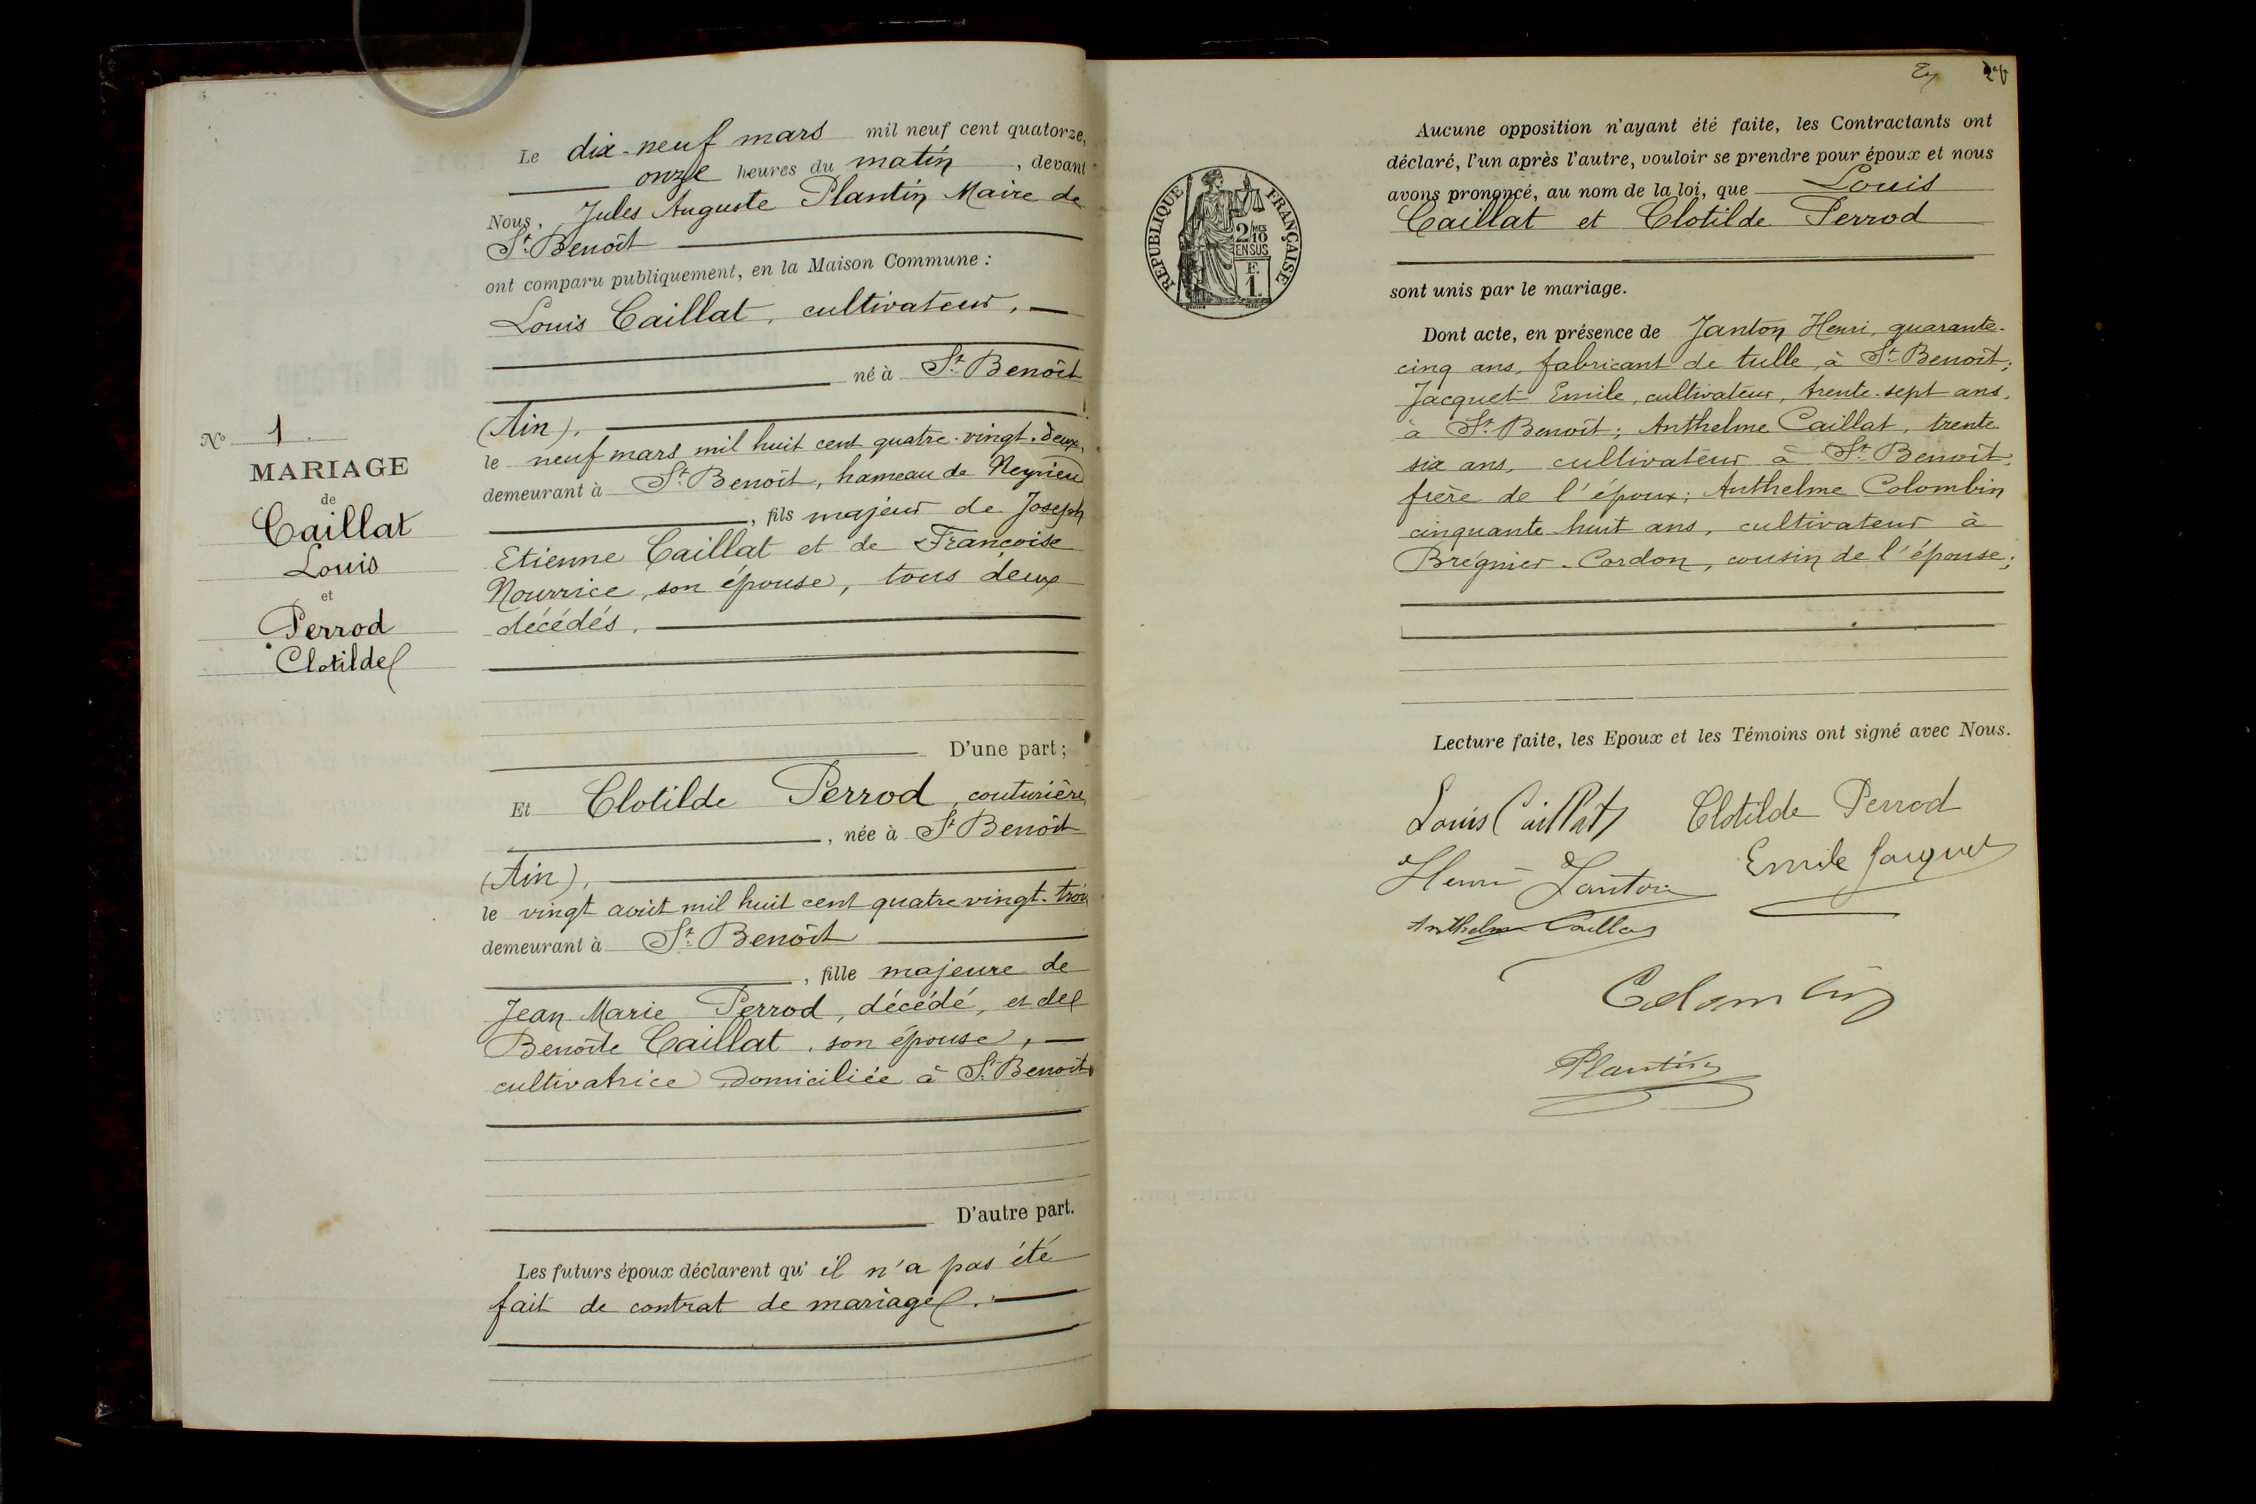 Le dix-neuf mars mil neuf cent quatorze,
onze heures du matin, devant
Nous, Jules Auguste Plantin Maire de
St. Benoît
ont comparu publiquement, en la Maison Commune :
Louis Caillat, cultivateur,
né à St. Benoît
(Ain),
le neuf mars mil huit cent quatre-vingt-deux,
demeurant à St. Benoît, hameau de Neyrieu
, fils majeur de Joseph
Etienne Caillat et de Françoise
Nourrice, son épouse, tous deux
décédés.
D'une part ;
Nº 1.
MARIAGE
de
Caillat
Louis
et
Perrod
Clotilde
Et Clotilde Perrod, couturière
, née à St Benoît
(Ain),
le vingt août mil huit cent quatre vingt-trois
demeurant à St. Benoît
, fille majeure de
Jean Marie Perrod, décédé, et de
Benoîte Caillat, son épouse,
cultivatrice domiciliée à St. Benoît
D'autre part.
Les futurs époux déclarent qu'il n'a pas été
fait de contrat de mariage.
REPUBLIQUE FRANÇAISE
2/10
EN SUS
F.
1.
Aucune opposition n'ayant été faite, les Contractants ont
déclaré, l'un après l'autre, vouloir se prendre pour époux et nous
avons prononcé, au nom de la loi, que Louis
Caillat et Clotilde Perrod
sont unis par le mariage.
Dont acte, en présence de Janton Henri, quarante-
cinq ans, fabricant de tulle, à St. Benoît;
Jacquet Emile, cultivateur, trente-sept ans,
à St. Benoît; Anthelme Caillat, trente
six ans, cultivateur à St. Benoît,
frère de l'époux; Anthelme Colombin
cinquante huit ans, cultivateur à
Brégnier-Cordon, cousin de l'épouse;
Lecture faite, les Epoux et les Témoins ont signé avec Nous.
Louis Caillat Clotilde Perrod
Henri Janton Emile Jacquet
Anthelme Caillat
Colombin
Plantin